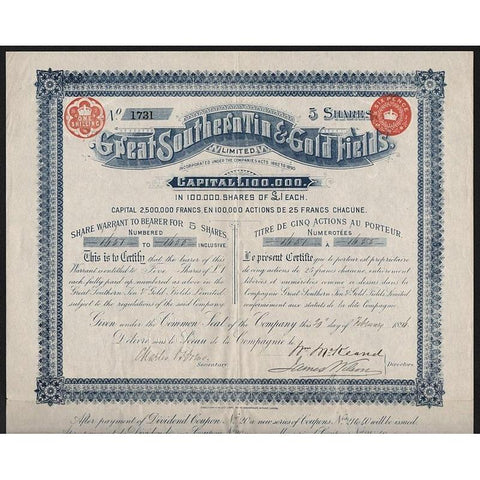 No 1731
5 SHARES
ONE SHILLING
SIX PENCE
Great Southern Tin & Gold Fields
LIMITED.
INCORPORATED UNDER THE COMPANIES ACTS 1862 TO 1890
CAPITAL £100,000.
IN 100,000 SHARES OF £1 EACH.
CAPITAL 2,500,000 FRANCS EN 100,000 ACTIONS DE 25 FRANCS CHACUNE.
SHARE WARRANT TO BEARER FOR 5 SHARES
NUMBERED
TO INCLUSIVE
This is to Certify that the bearer of this
Warrant entitled to Five Shares of £1
each fully paid up, numbered as above in the
Great Southern Tin & Gold Fields Limited
subject to the regulations of the said Company
TITRE DE CINQ ACTIONS AU PORTEUR.
NUMEROTÉES
À
Le présent Certifie que le porteur est propriétaire
de cinq actions de 25 francs chacune, entièrement
libérées et numérotées comme ci dessus dans la
Compagnie Great Southern Tin & Gold Fields Limited
conformément aux statuts de la dite Compagnie
Given under the Common Seal of the Company this day of February
Délivré sous le Sceau de la Compagnie le
Wm McKeand
James Wilson
Secretary
Directors
After payment of Dividend Coupon No 20 a new series of Coupons, Nos 21 to 40 will be issued.